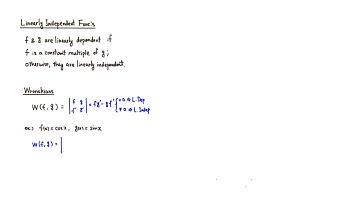 Linearly Independent Func's
f & g are linearly dependent if
f is a constant multiple of g;
otherwise, they are linearly independent.
Wronskian:
W(f, g) = | f g | = fg' - gf' { = 0 ⇒ L.Dep
| f' g' | ≠ 0 ⇒ L.Indep
ex:) f(x) = cos x, g(x) = sin x
W(f, g) = |